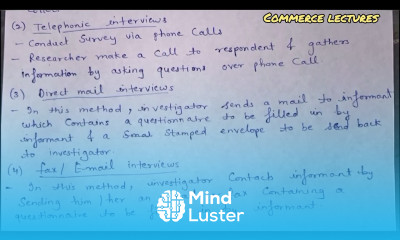 Commerce lectures
(2) Telephonic interviews
- Conduct Survey via phone Calls
- Researcher make a Call to respondent & gathers
Information by asking questions over phone Call
(3) Direct mail interviews
- In this method, investigator sends a mail to informant
which Contains a questionnaire to be filled in by
informant & a Small Stamped envelope to be send back
to investigator
(4) fax/ E-mail interviews
- In this method, investigator Contacts informant by
Sending him/her an Containing a
questionnaire to be informant
Mind
Luster